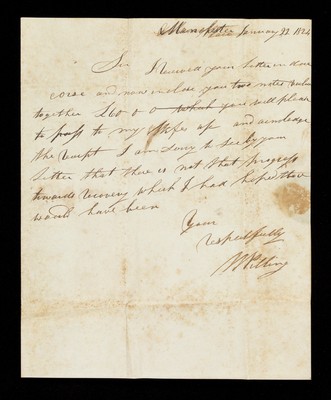 Manchester January 22 1824
Sir I Received your letter in due
corse and now inclose you two notes value
together £60 0 0 which you will please
to pass to my up and acnoledge
the recipt I am Sorry to see by your
letter that there is not that progress
towards recovery which I had hope there
would have been
Your
respectfully